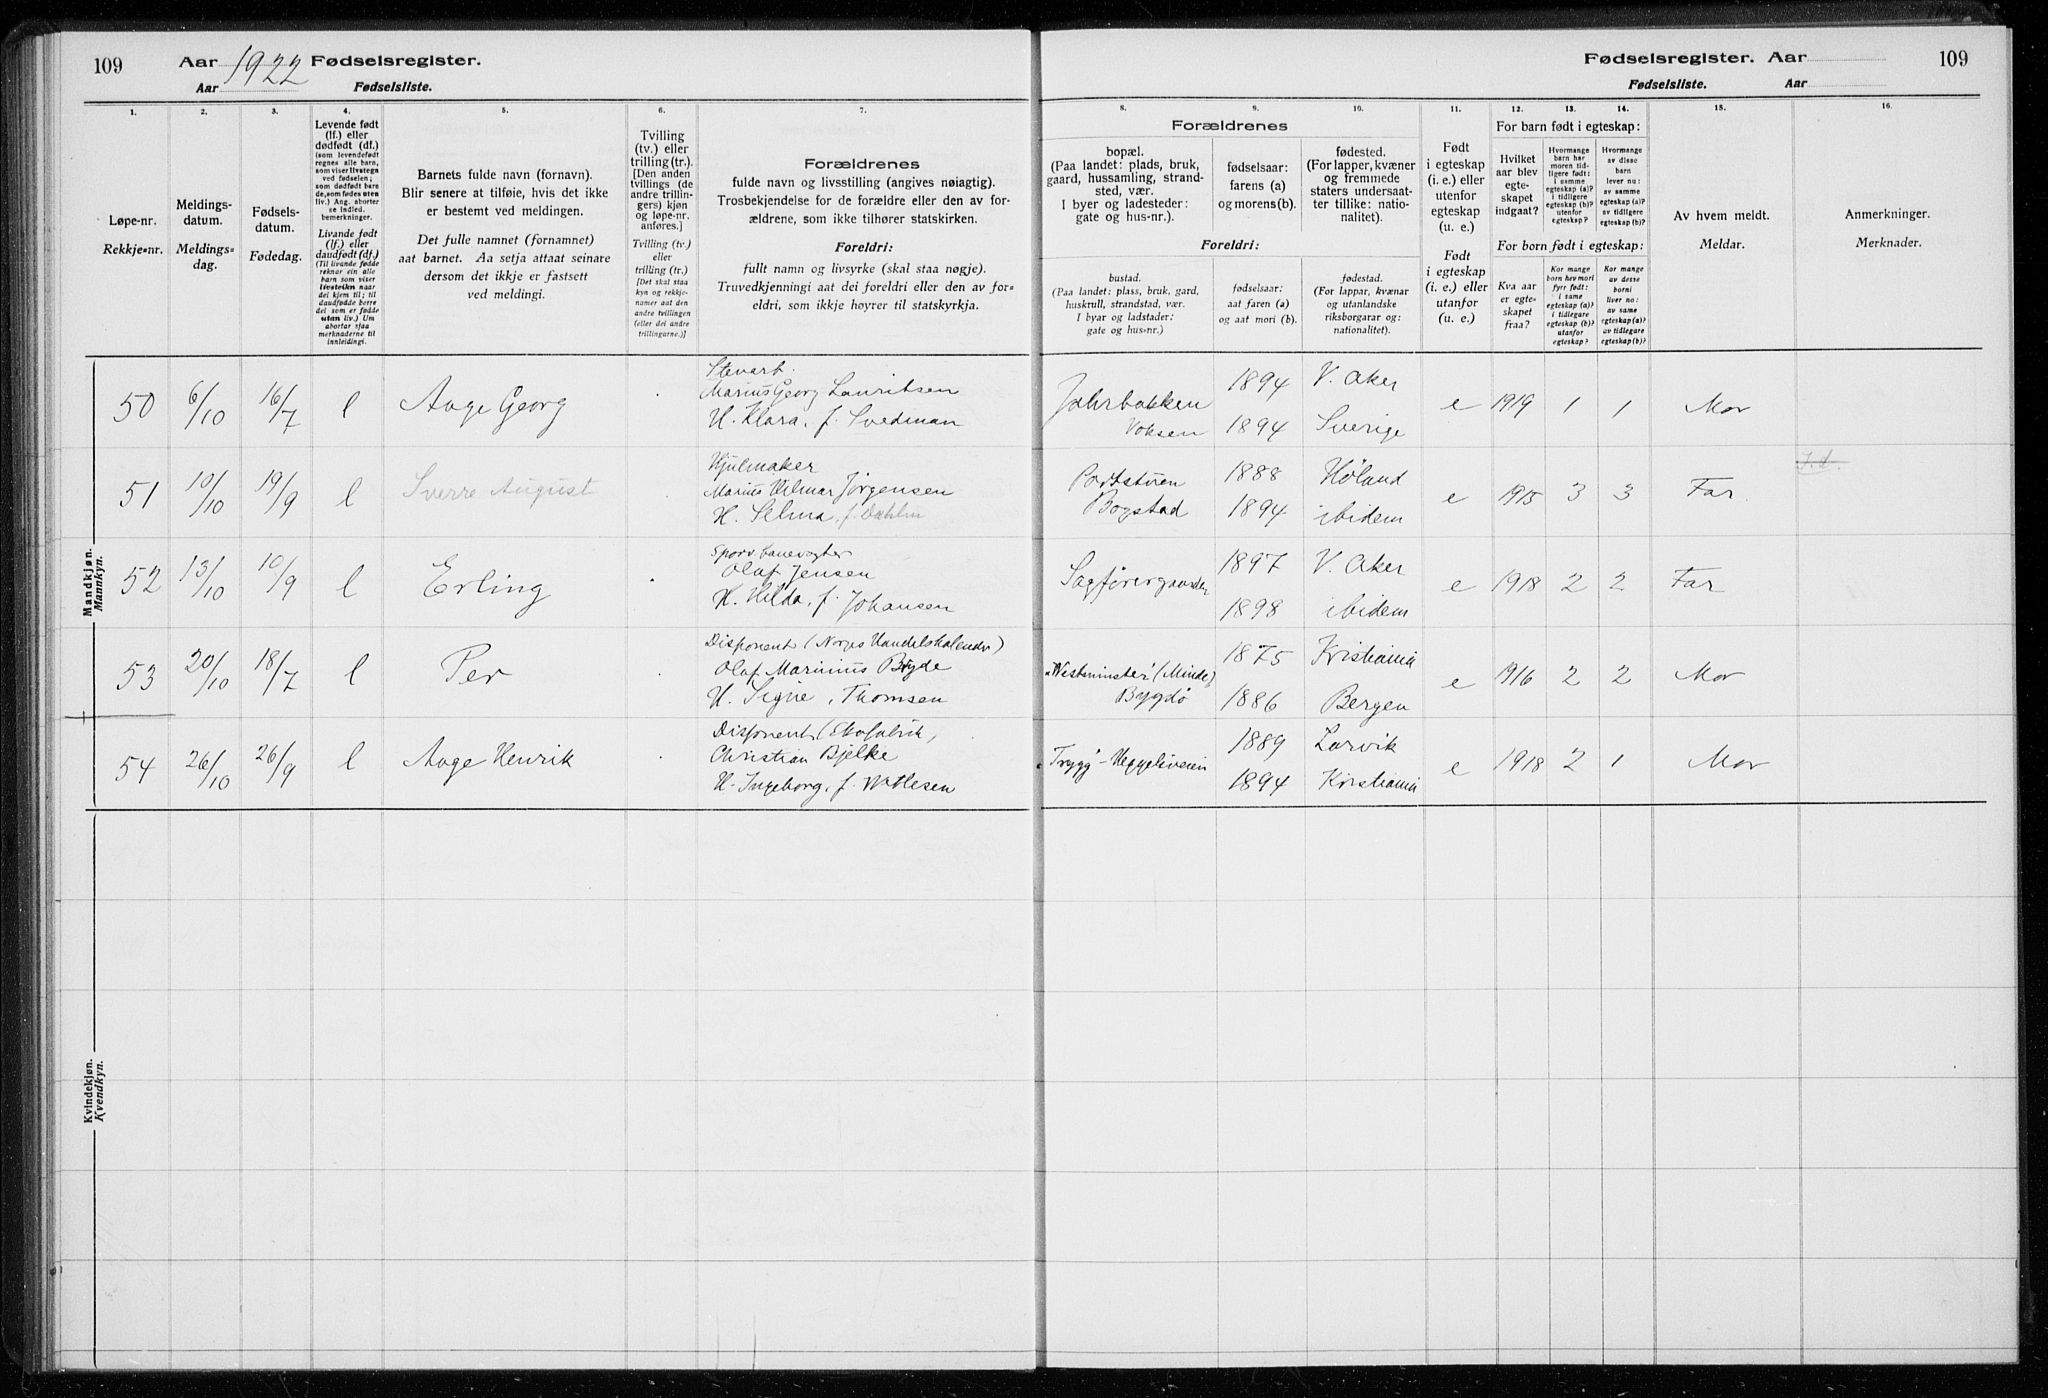 109
Aar 1922 Fødselsregister.
Aar Fødselsliste.
Fødselsregister. Aar
109
Fødselsliste. Aar
1. 2. 3. 4. 5. 6. 7. 8. 9. 10. 11. 12. 13. 14. 15. 16.
Løpe-nr.
Rekkje-nr.
Meldings-
datum.
Meldings-
dag.
Fødsels-
datum.
Fødedag.
Levende født
(lf.) eller
dødfødt (df.)
(som levendefødt
regnes alle barn,
som viser livstegn
ved fødselen;
som dødfødt bare
de, som fødes uten
liv.) Ang. aborter
se indled.
bemerkninger.
Livande født
(lf.) eller
daudfødt (df.)
(Til livande fødde
reknar ein alle
barn som viser
livsteikn naar
dei kjem til; til
daudfødde berre
dei som er fødde
utan liv.) Um
abortar sjaa
merknaderne til
innleidingi.
Barnets fulde navn (fornavn).
Blir senere at tilføie, hvis det ikke
er bestemt ved meldingen.
Det fulle namnet (fornamnet)
aat barnet. Aa setja attaat seinare
dersom det ikkje er fastsett
ved meldingi.
Tvilling
(tv.) eller
trilling (tr.).
[Den anden
tvillings (de
andre trillin-
gers) kjøn
og løpe-nr.
anføres.]
Tvilling (tv.)
eller
trilling (tr.)
[Det skal staa
kyn og rekkje-
numer aat den
andre tvillingen
(eller dei andre
trillingarne.)]
Forældrenes
fulde navn og livsstilling (angives nøiagtig).
Trosbekjendelse for de forældre eller den av for-
ældrene, som ikke tilhører statskirken.
Foreldri:
fullt namn og livsyrke (skal staa nøgje).
Truvedkjenningi aat dei foreldri eller den av for-
eldri, som ikkje høyrer til statskyrkja.
Forældrenes
bopæl.
(Paa landet: plads, bruk,
gaard, hussamling, strand-
sted, vær.
I byer og ladesteder:
gate og hus-nr.).
fødselsaar:
farens (a)
og morens(b).
fødested.
(For lapper, kvæner
og fremmede
staters undersaat-
ter tillike: natio-
nalitet).
Foreldri:
bustad.
(Paa landet: plass, bruk, gard,
huskrull, strandstad, vær.
I byar og ladstader:
gate og hus-nr.)
fødselsaar:
aat faren (a)
og aat mori (b).
fødestad.
(For lappar, kvænar
og utanlandske
riksborgarar og:
nationalitet).
Født
i egteskap
(i. e.) eller
utenfor
egteskap
(u. e.)
Født
i egteskap
(i. e.) eller
utanfor
egteskap
(u. e.)
For barn født i egteskap:
Hvilket
aar blev
egte-
skapet
indgaat?
Hvormange
barn har
moren tid-
ligere født:
i samme
egteskap (a)?
i tidligere
egteskap (b)?
utenfor
egteskap?
Hvormange
av disse
barn
lever nu:
av samme
egteskap (a)?
av tidligere
egteskap (b)?
For born født i egteskap:
Kva aar
er egte-
skapet
fraa?
Kor mange
born hev mori
fyrr født:
i same
egteskap (a)?
i tidlegare
egteskap (b)?
utanfor
egteskap?
Kor mange
av desse
borni
liver no:
av same
egteskap (a)?
av tidlegare
egteskap (b)?
Av hvem meldt.
Meldar.
Anmerkninger.
Merknader.
Mandkjøn.
Mannkyn.
50 6/10 16/7 l Aage Georg
Stenarb.
Marius Georg Lauritsen
H. Klara, f. Svedman
Jahrbakken
Voksen
1894 V. Aker
1894 Sverige
e 1919 1 1 Mor
51 10/10 19/9 l Sverre August
Hjulmaker
Marius Hilmar Jørgensen
H. Selma, f. Dahlin
Bogstad
1888 Høland
1894 ibidem
e 1915 3 3 Far
52 13/10 10/9 l Erling
Sporv. banevogter
Olaf Jensen
H. Hilda, f. Johansen
Sagførergaarden
1897 V. Aker
1898 ibidem
e 1918 2 2 Far
53 20/10 18/7 l Per
Disponent (Norges Handelskalender)
Olaf Marinius Bryde
H. Signe, Thomsen
"Westminster" (Minde)
Bygdø
1875 Kristiania
1886 Bergen
e 1916 2 2 Mor
54 26/10 26/9 l Aage Henrik
Disponent (Ekofabrik)
Christian Bjelke
H. Ingeborg, f. Wattesen
"Trygg" - Heggeliveien
1889 Larvik
1894 Kristiania
e 1918 2 1 Mor
Kvindekjøn.
Kvendkyn.